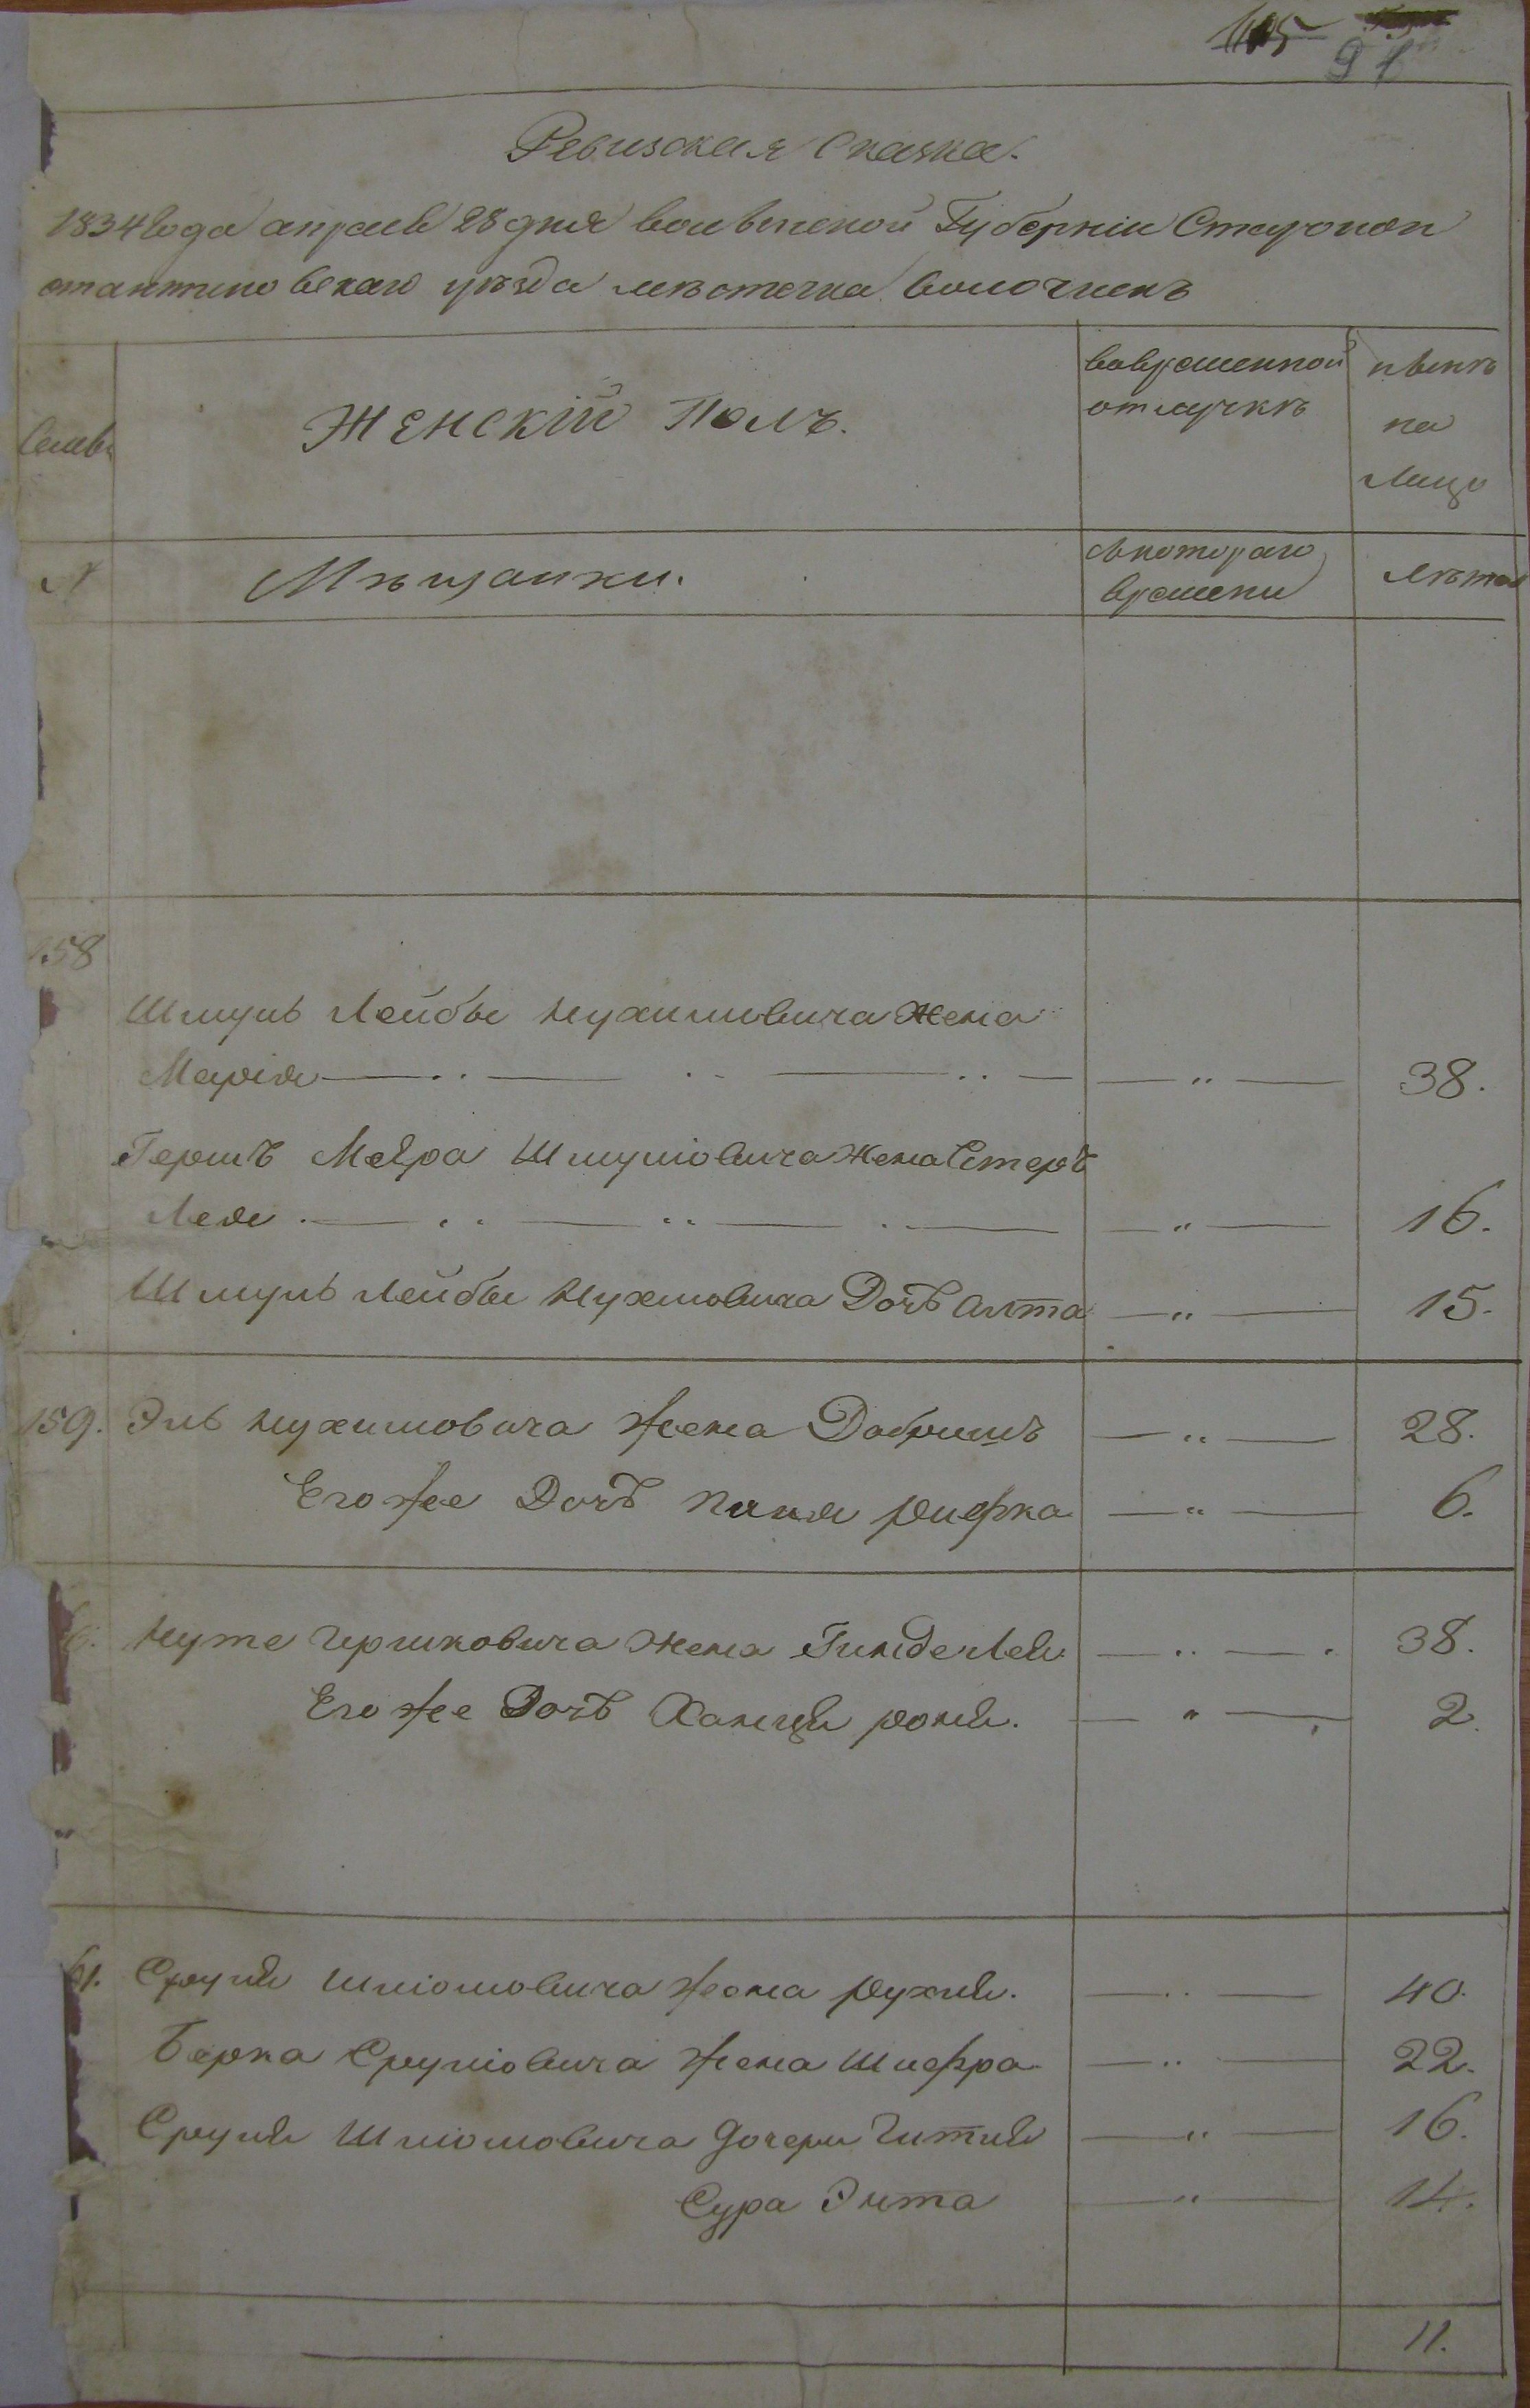 91
Ревизская Сказка.
1834 года апреля 28 дня волынской Губерніи Старокон
стантиновскаго уѣзда мѣстечка волочискъ
Семьи
Женскій Полъ.
вовременной
отлучкѣ
нынѣ
на
лицо
№
Мѣщанки.
съкотораго
времени
лѣта
158
Шмуль Лейбы Нухимовича жена
Марія 38.
Гершъ Меѣра Шмуліовича жена Естеръ
Лея 16.
Шмуль Лейбы Нухимовича Дочъ Алта 15.
159. Эль Нухимовича жена Добришъ 28.
Его же Дочъ Паия рифка 6.
Нуте Гершковича жена Гинде Лея 38.
Его же Дочъ Ханця роня. 2.
61. Сруля Шліомовича жена рухля. 40.
Берка Сруліовича жена Шифра 22.
Сруля Шліомовича дочери Гитля 16.
Сура Энта 14.
11.